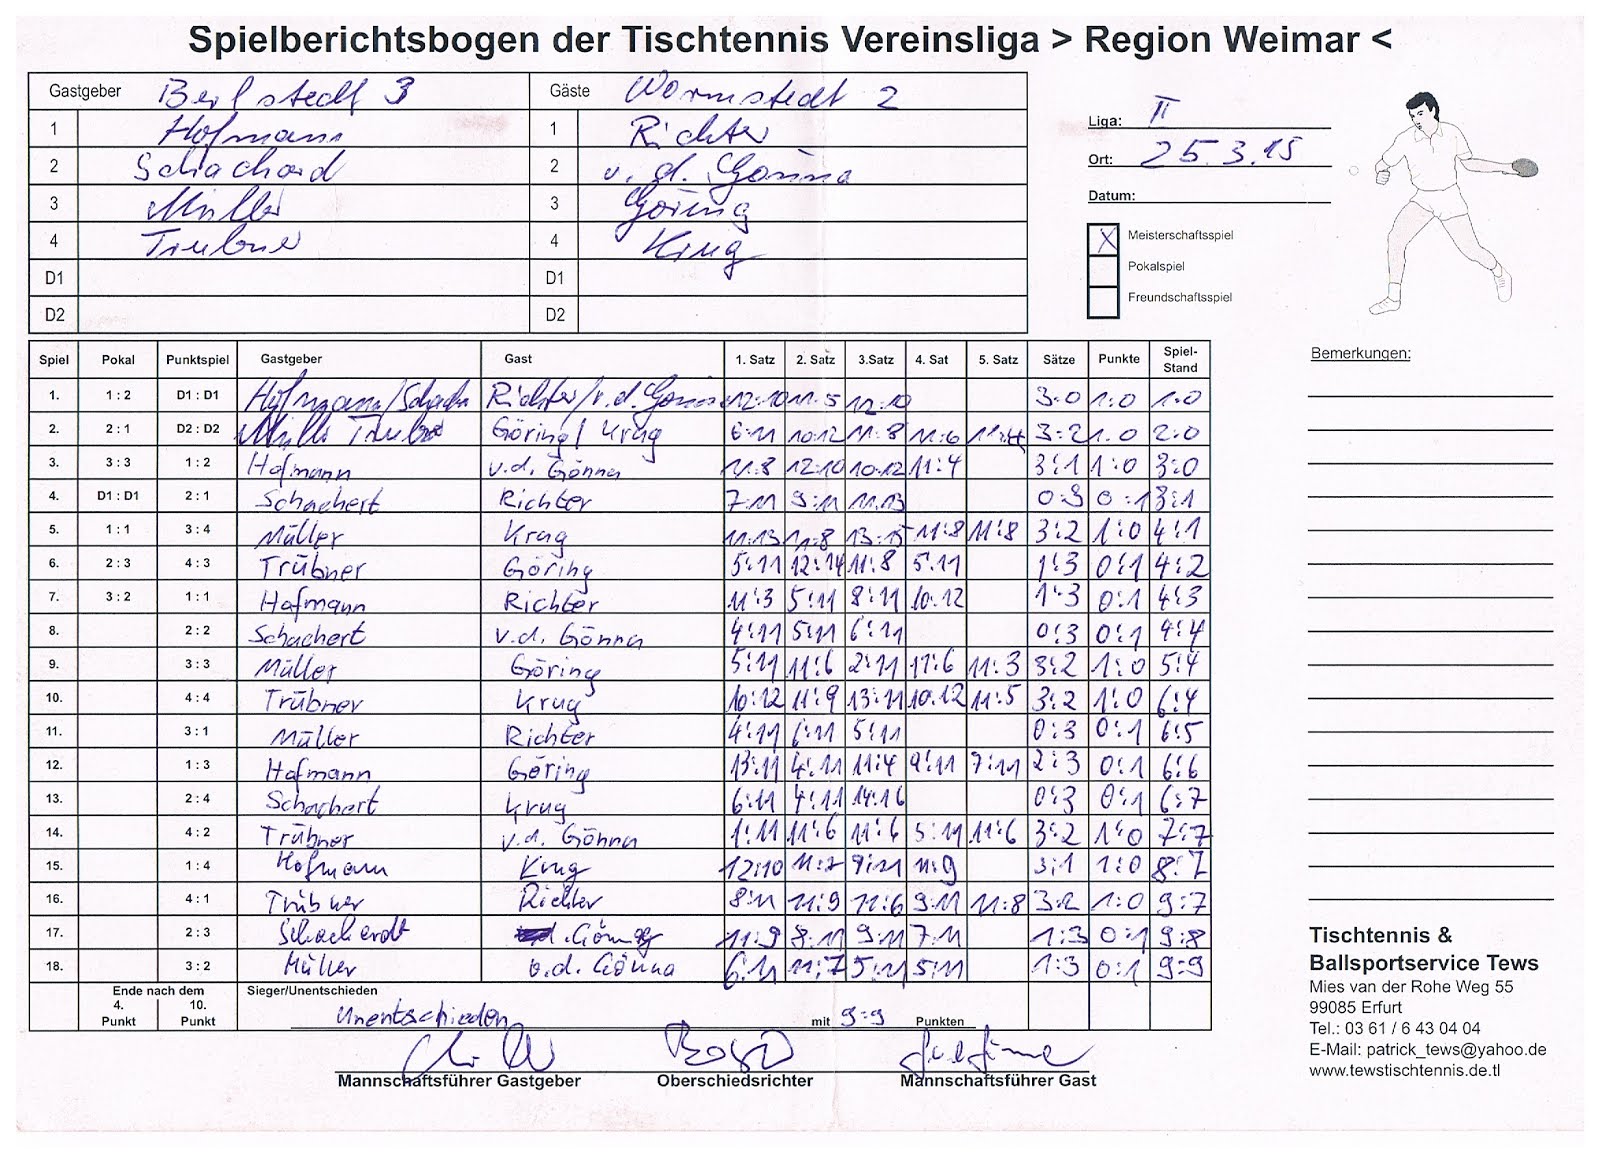 Spielberichtsbogen der Tischtennis Vereinsliga > Region Weimar <
Gastgeber Berlstedt 3 Gäste Wormstedt 2
1 Hofmann 1 Richter
2 Schachard 2 v. d. Gönna
3 Müller 3 Göring
4 Trübner 4 Krug
D1 D1
D2 D2
Liga: II
Ort: 25.3.15
Datum:
X Meisterschaftsspiel
Pokalspiel
Freundschaftsspiel
Spiel Pokal Punktspiel Gastgeber Gast 1. Satz 2. Satz 3.Satz 4. Sat 5. Satz Sätze Punkte Spiel-Stand
1. 1 : 2 D1 : D1 Hofmann/Schach Richter/v.d. Gönna 12:10 11:5 12:10 3:0 1:0 1:0
2. 2 : 1 D2 : D2 Müller Trübner Göring/Krug 6:11 10:12 11:8 11:6 3:2 1:0 2:0
3. 3 : 3 1 : 2 Hofmann v.d. Gönna 11:8 12:10 10:12 11:4 3:1 1:0 3:0
4. D1 : D1 2 : 1 Schachert Richter 7:11 9:11 11:13 0:3 0:1 3:1
5. 1 : 1 3 : 4 Müller Krug 11:13 11:8 13:15 11:8 11:8 3:2 1:0 4:1
6. 2 : 3 4 : 3 Trübner Göring 5:11 12:14 11:8 5:11 1:3 0:1 4:2
7. 3 : 2 1 : 1 Hofmann Richter 11:3 5:11 8:11 10:12 1:3 0:1 4:3
8. 2 : 2 Schachert v.d. Gönna 4:11 5:11 6:11 0:3 0:1 4:4
9. 3 : 3 Müller Göring 5:11 11:6 2:11 11:6 11:3 3:2 1:0 5:4
10. 4 : 4 Trübner Krug 10:12 11:9 13:11 10:12 11:5 3:2 1:0 6:4
11. 3 : 1 Müller Richter 4:11 6:11 5:11 0:3 0:1 6:5
12. 1 : 3 Hofmann Göring 13:11 4:11 11:4 9:11 7:11 2:3 0:1 6:6
13. 2 : 4 Schachert Krug 6:11 4:11 14:16 0:3 0:1 6:7
14. 4 : 2 Trübner v.d. Gönna 1:11 11:6 11:6 5:11 11:6 3:2 1:0 7:7
15. 1 : 4 Hofmann Krug 12:10 11:7 9:11 11:9 3:1 1:0 8:7
16. 4 : 1 Trübner Richter 8:11 11:9 11:6 9:11 11:8 3:2 1:0 9:7
17. 2 : 3 Schacherdt 11:9 8:11 9:11 7:11 1:3 0:1 9:8
18. 3 : 2 Müller v.d. Gönna 6:11 11:7 5:11 5:11 1:3 0:1 9:9
Ende nach dem Sieger/Unentschieden
4. Punkt 10. Punkt Unentschieden mit 9:9 Punkten
Mannschaftsführer Gastgeber Oberschiedsrichter Mannschaftsführer Gast
Bemerkungen:
Tischtennis &
Ballsportservice Tews
Mies van der Rohe Weg 55
99085 Erfurt
Tel.: 03 61 / 6 43 04 04
E-Mail: patrick_tews@yahoo.de
www.tewstischtennis.de.tl